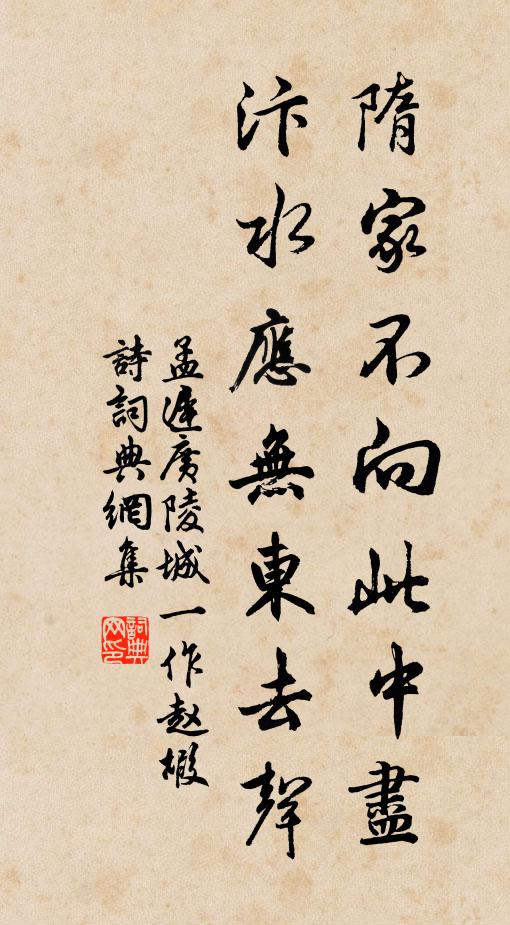 隋家不向此中盡
汴水應無東去聲
孟遲廣陵城一作赵嘏
詩詞典網集
詞典網印